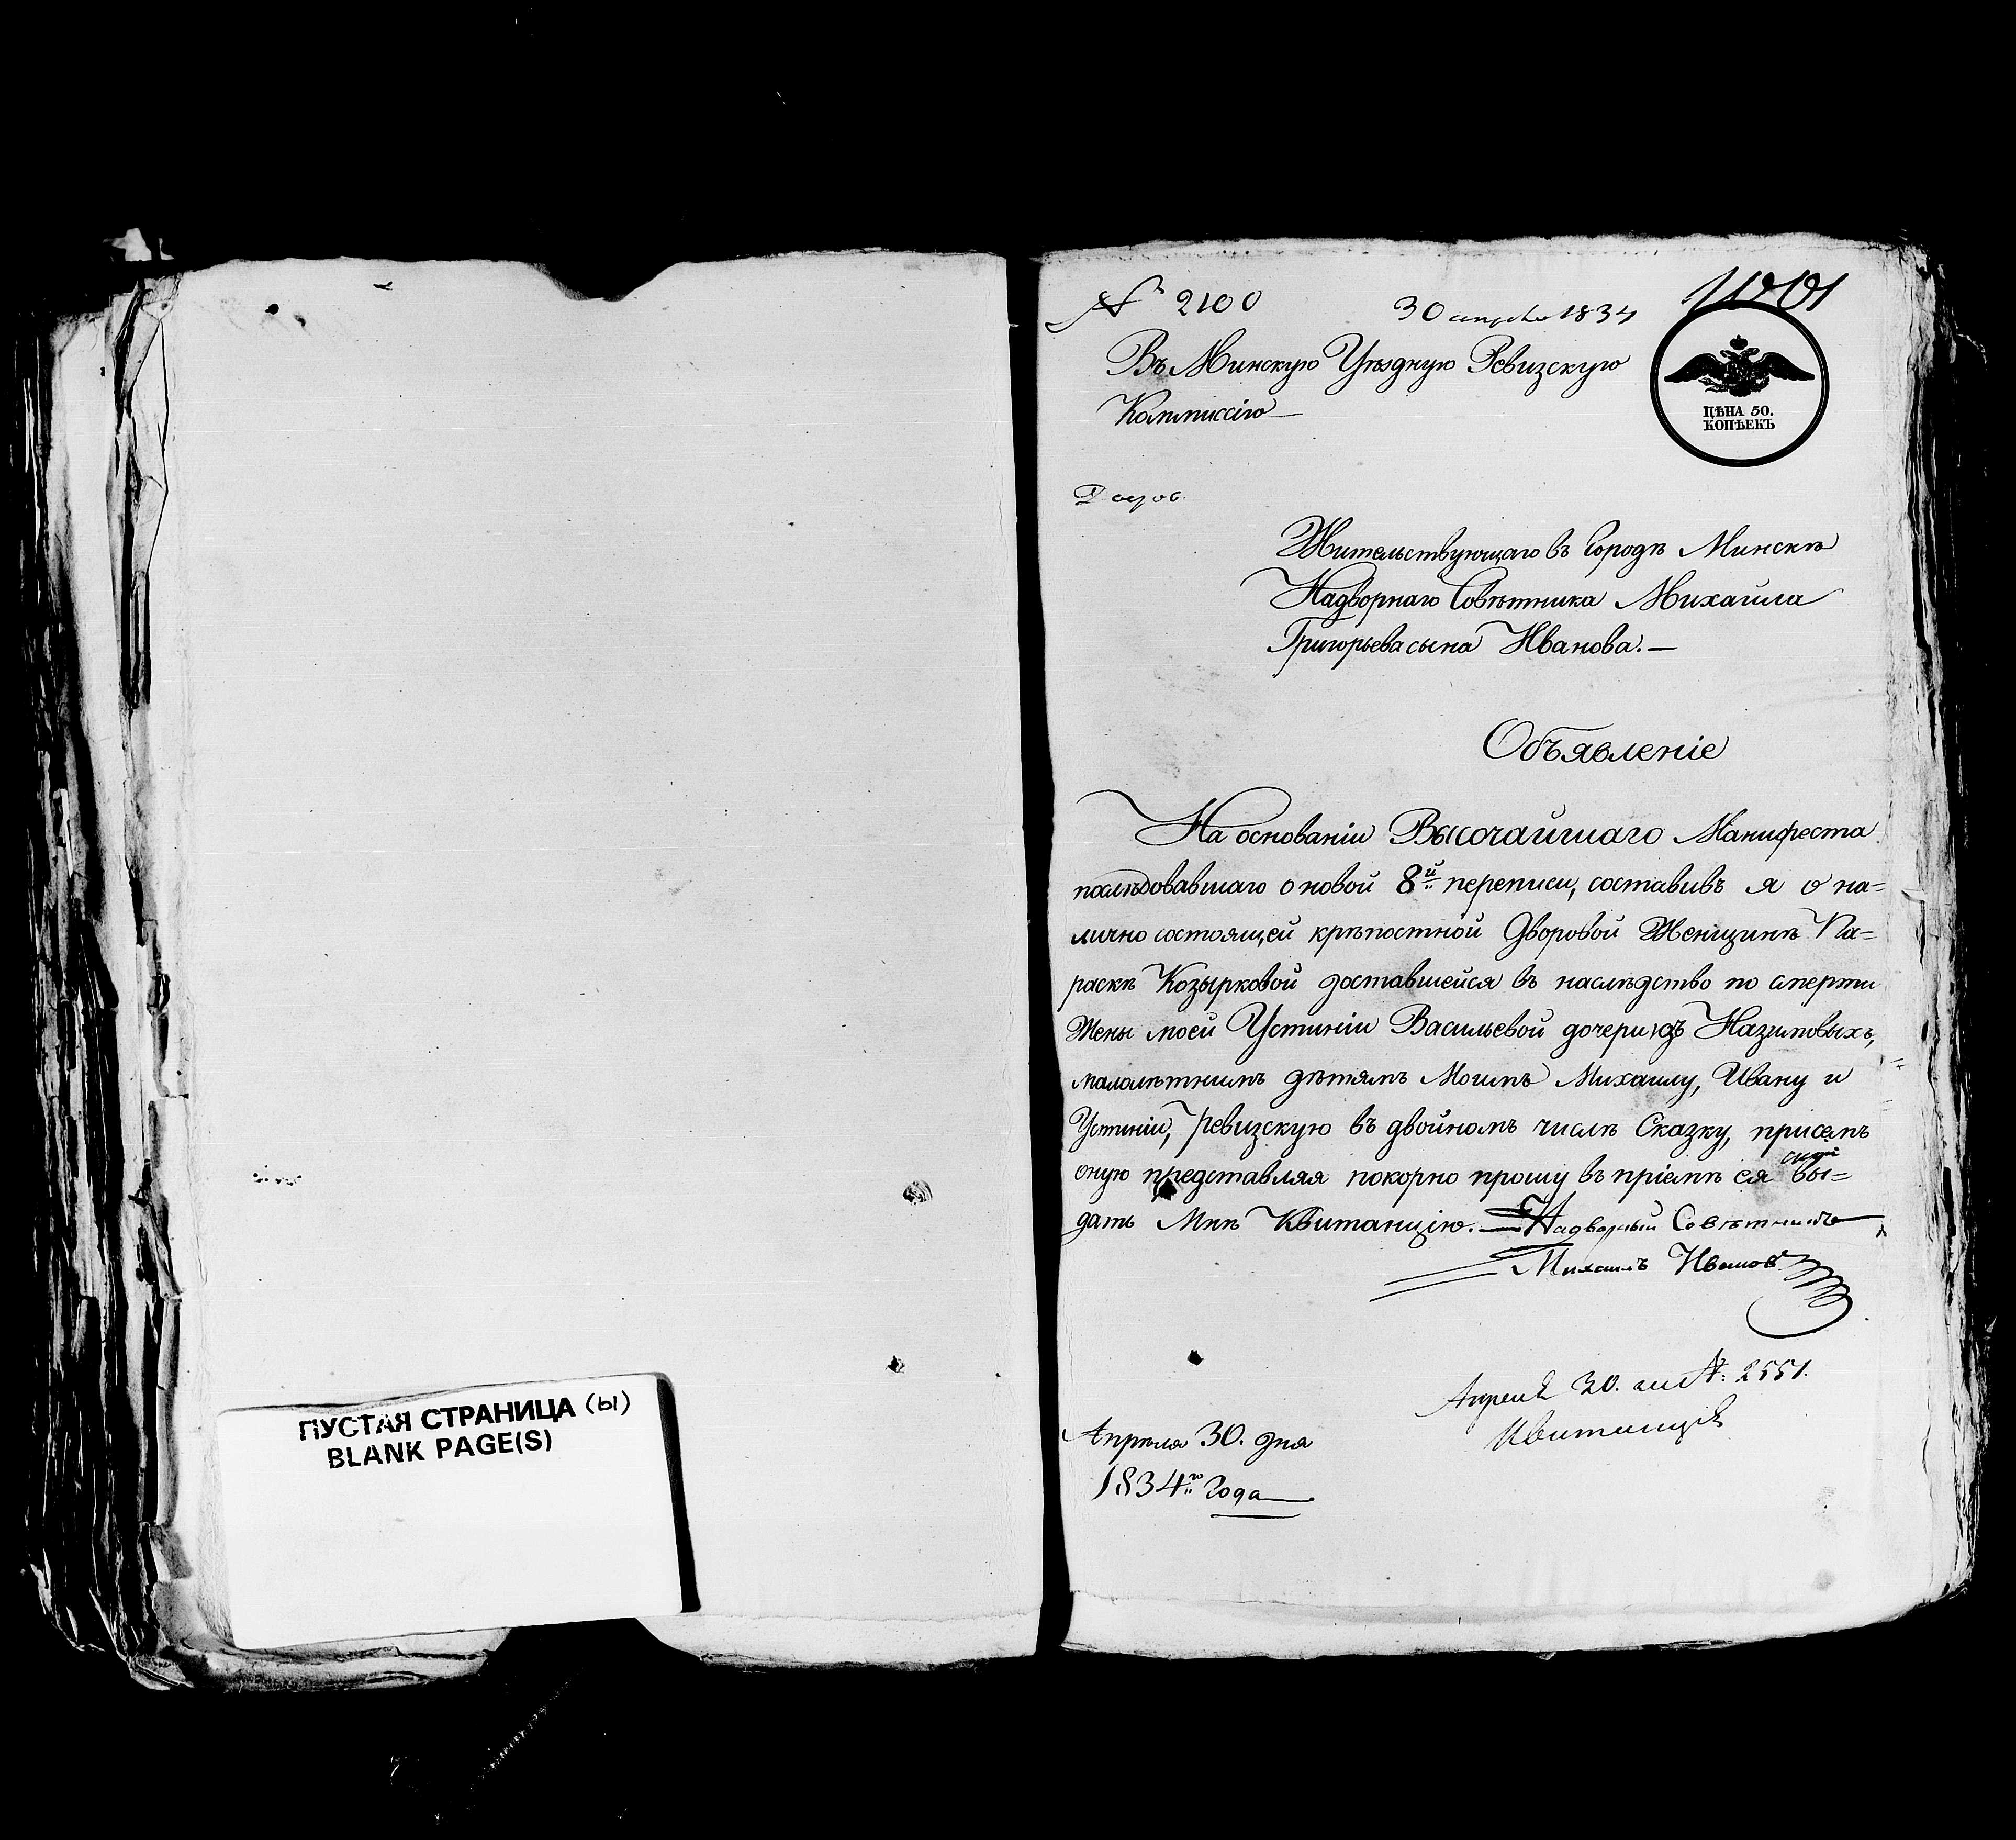 ПУСТАЯ СТРАНИЦА (Ы)
BLANK PAGE(S)
№ 2100
30 апреля 1834
ЦѢНА 50.
КОПѢЕКЪ
Въ Минскую Уѣздную Ревизскую
Коммиссію
Жительствующаго въ Городѣ Минскѣ
Надворнаго Совѣтника Михайла
Григорьева сына Иванова.—
Объявленіе
На основаніи Высочайшаго Манифеста
послѣдовавшаго о новой 8й переписи, составивъ я о на=
лично состоящей крѣпостной Дворовой Женщинѣ Па=
раскѣ Козырковой доставшейся въ наслѣдство по смерти
Жены моей Устиніи Васильевой дочери изъ Назимовыхъ,
малолѣтнимъ дѣтямъ Моимъ Михаилу, Ивану и
Устиніи, ревизскую въ двойномъ числѣ Сказку, присемъ
оную представляя покорно прошу въ пріемѣ ея вы=
дать Мнѣ Квитанцію.— Надворный Совѣтникъ
Михаилъ Ивановъ
Апреля 30. за №. 2551.
Квитанція
Апрѣля 30. дня
1834го Года